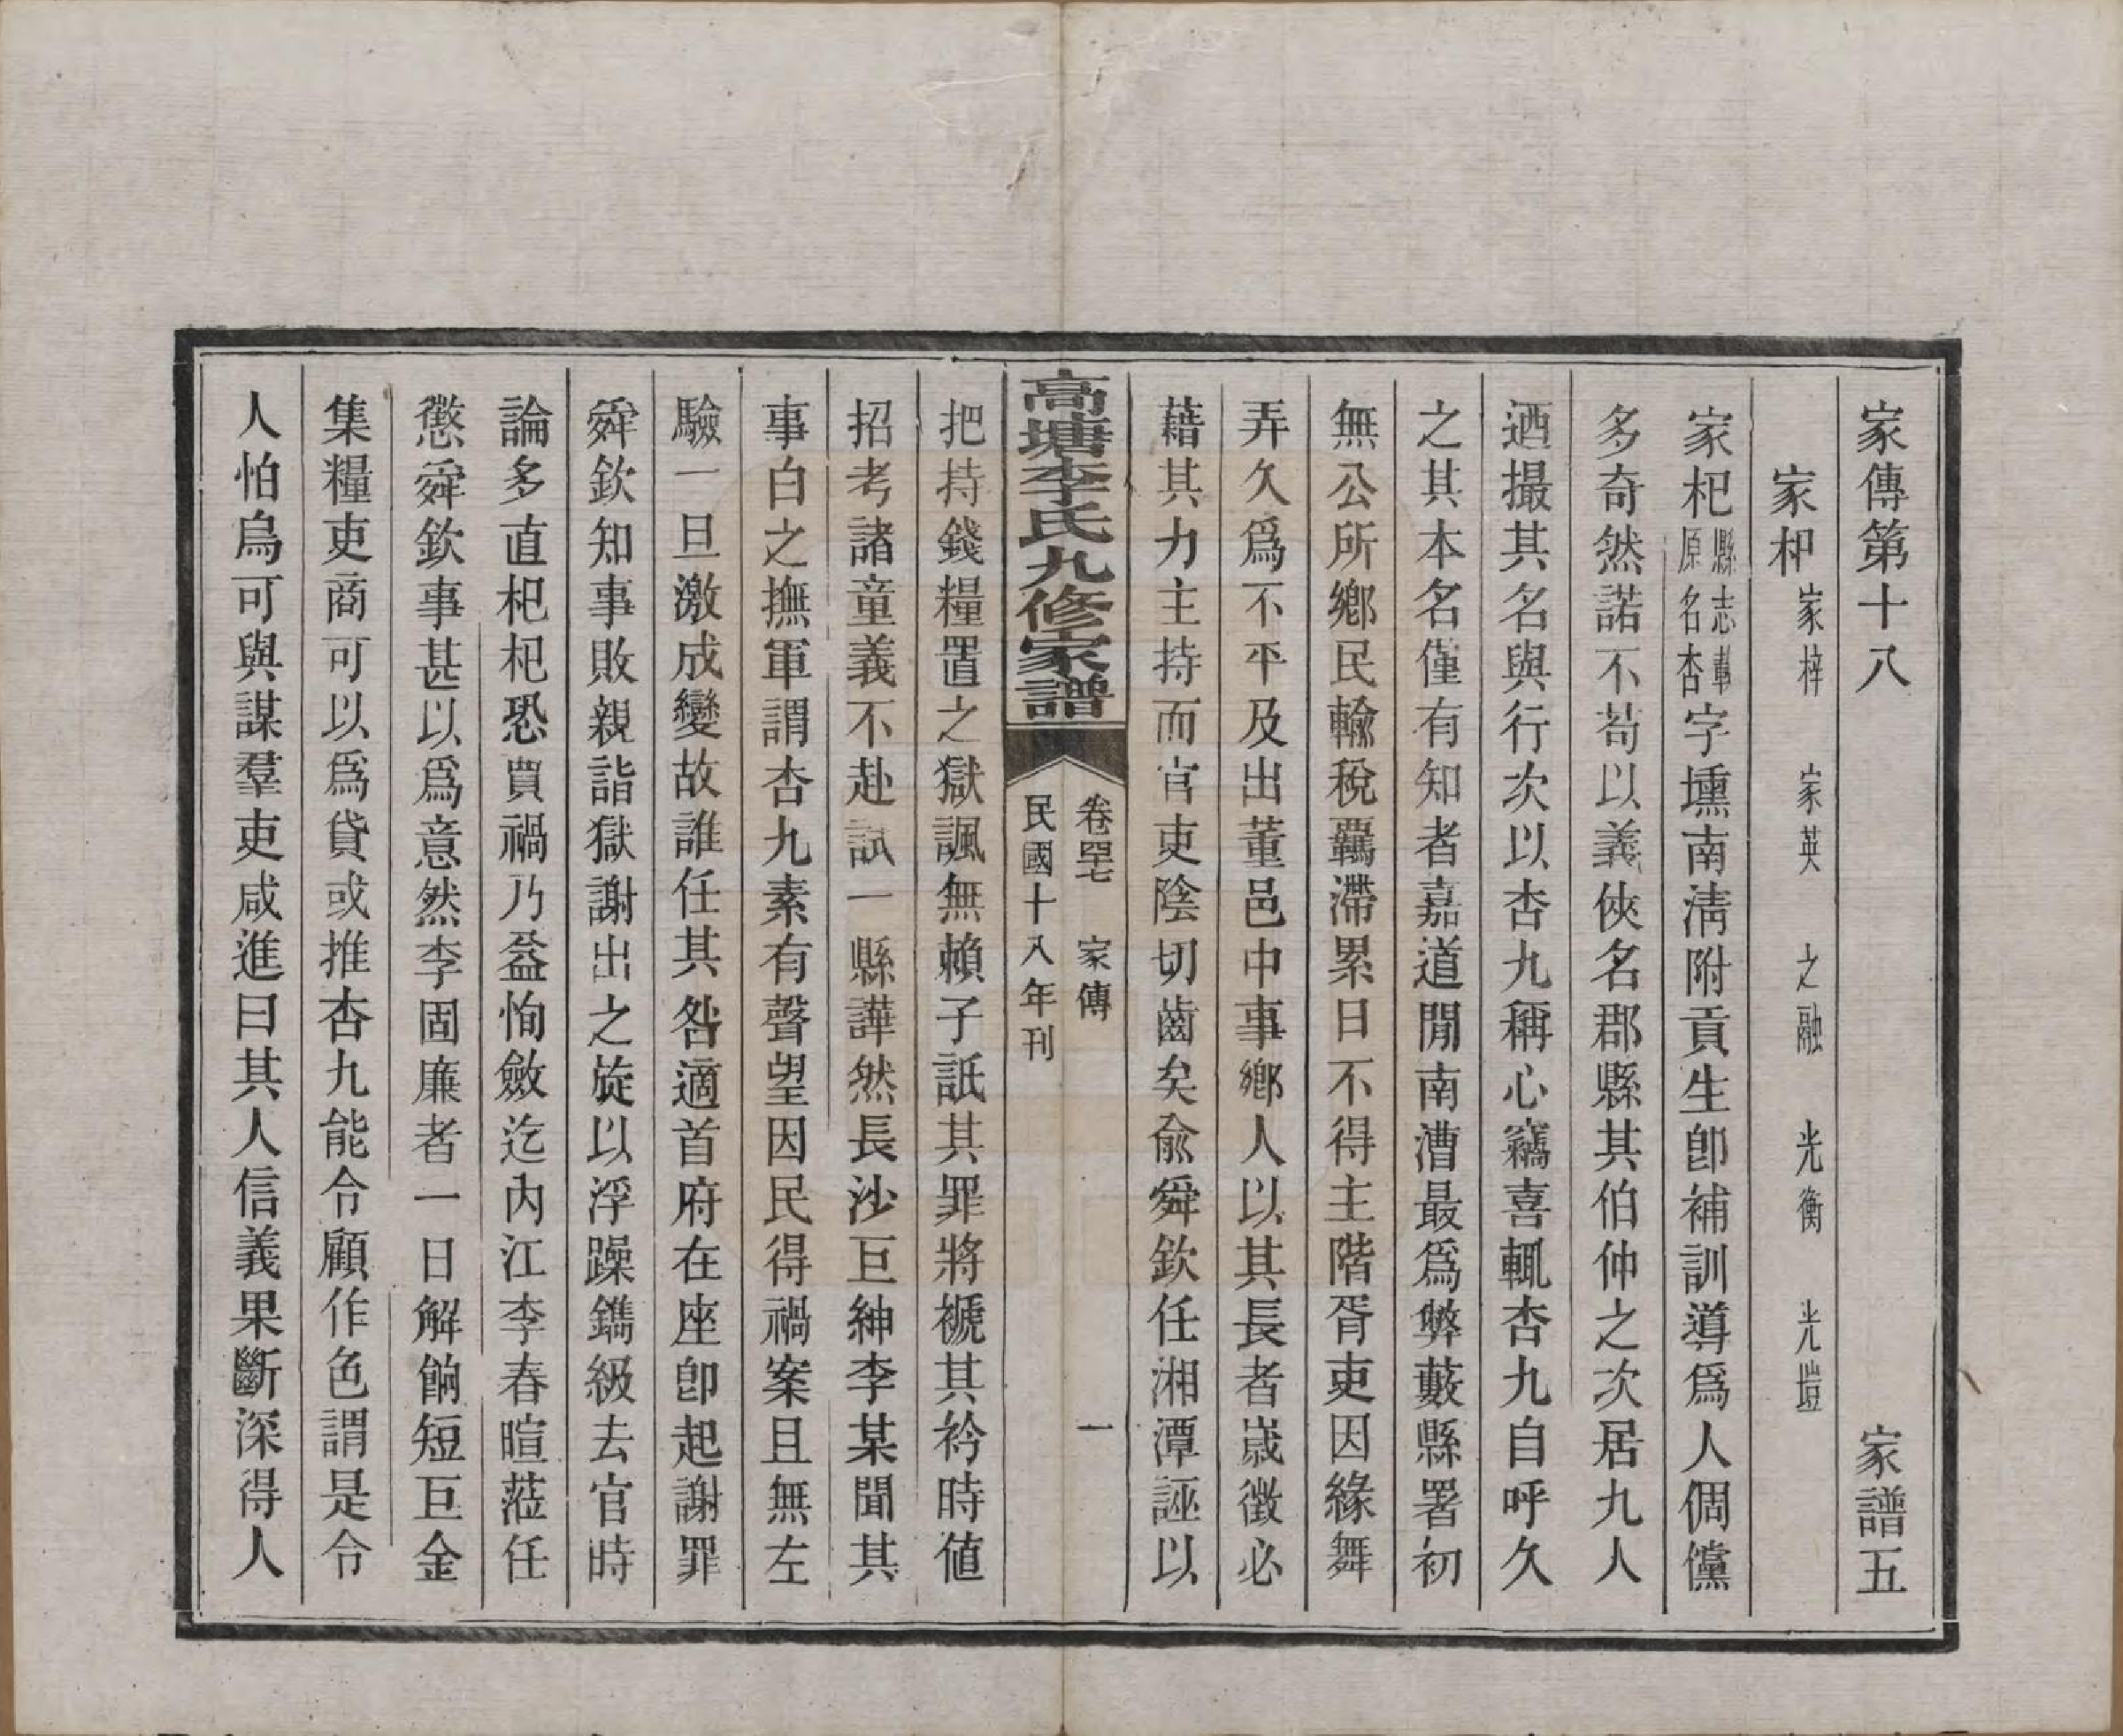 家傳第十八　家譜五
家枊　家梓　家英　之融　光衡　光塏
家杞縣志載原名杏字壎南淸附貢生卽補訓導爲人倜儻
多奇然諾不苟以義俠名郡縣其伯仲之次居九人
迺撮其名與行次以杏九稱心竊喜輒杏九自呼久
之其本名僅有知者嘉道閒南漕最爲弊藪縣署初
無公所鄉民輸稅羈滯累日不得主階胥吏因緣舞
弄久爲不平及出董邑中事鄉人以其長者歲徵必
藉其力主持而官吏陰切齒矣俞舜欽任湘潭誣以
高塘李氏九修家譜
卷罕七　家傳　一
民國十八年刊
把持錢糧置之獄諷無賴子詆其罪將褫其衿時値
招考諸童義不赴試一縣譁然長沙巨紳李某聞其
事白之撫軍謂杏九素有聲望因民得禍案且無左
驗一旦激成變故誰任其咎適首府在座卽起謝罪
舜欽知事敗親詣獄謝出之旋以浮躁鐫級去官時
論多直杞杞恐買禍乃益恂斂迄內江李春暄蒞任
懲舜欽事甚以爲意然李固廉者一日解餉短巨金
集糧吏商可以爲貸或推杏九能令顧作色謂是令
人怕烏可與謀羣吏咸進曰其人信義果斷深得人